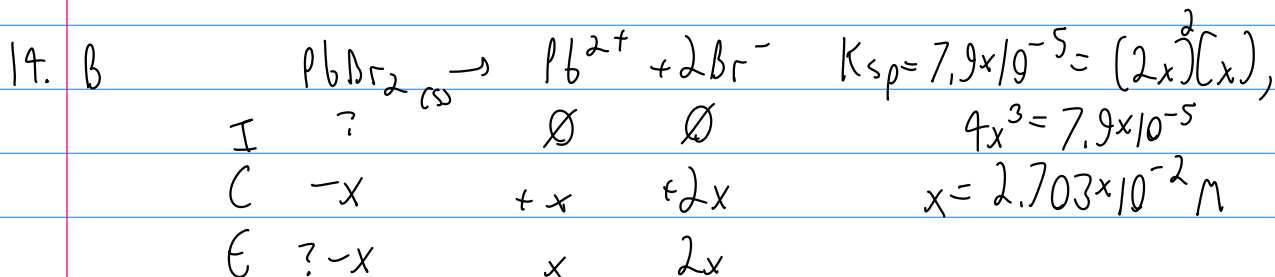 14. B PbBr₂ (s) → Pb²⁺ + 2Br⁻ Ksp = 7.9×10⁻⁵ = (2x)²(x),
I ? Ø Ø 4x³ = 7.9×10⁻⁵
C -x +x +2x x = 2.703×10⁻² M
E ?-x x 2x